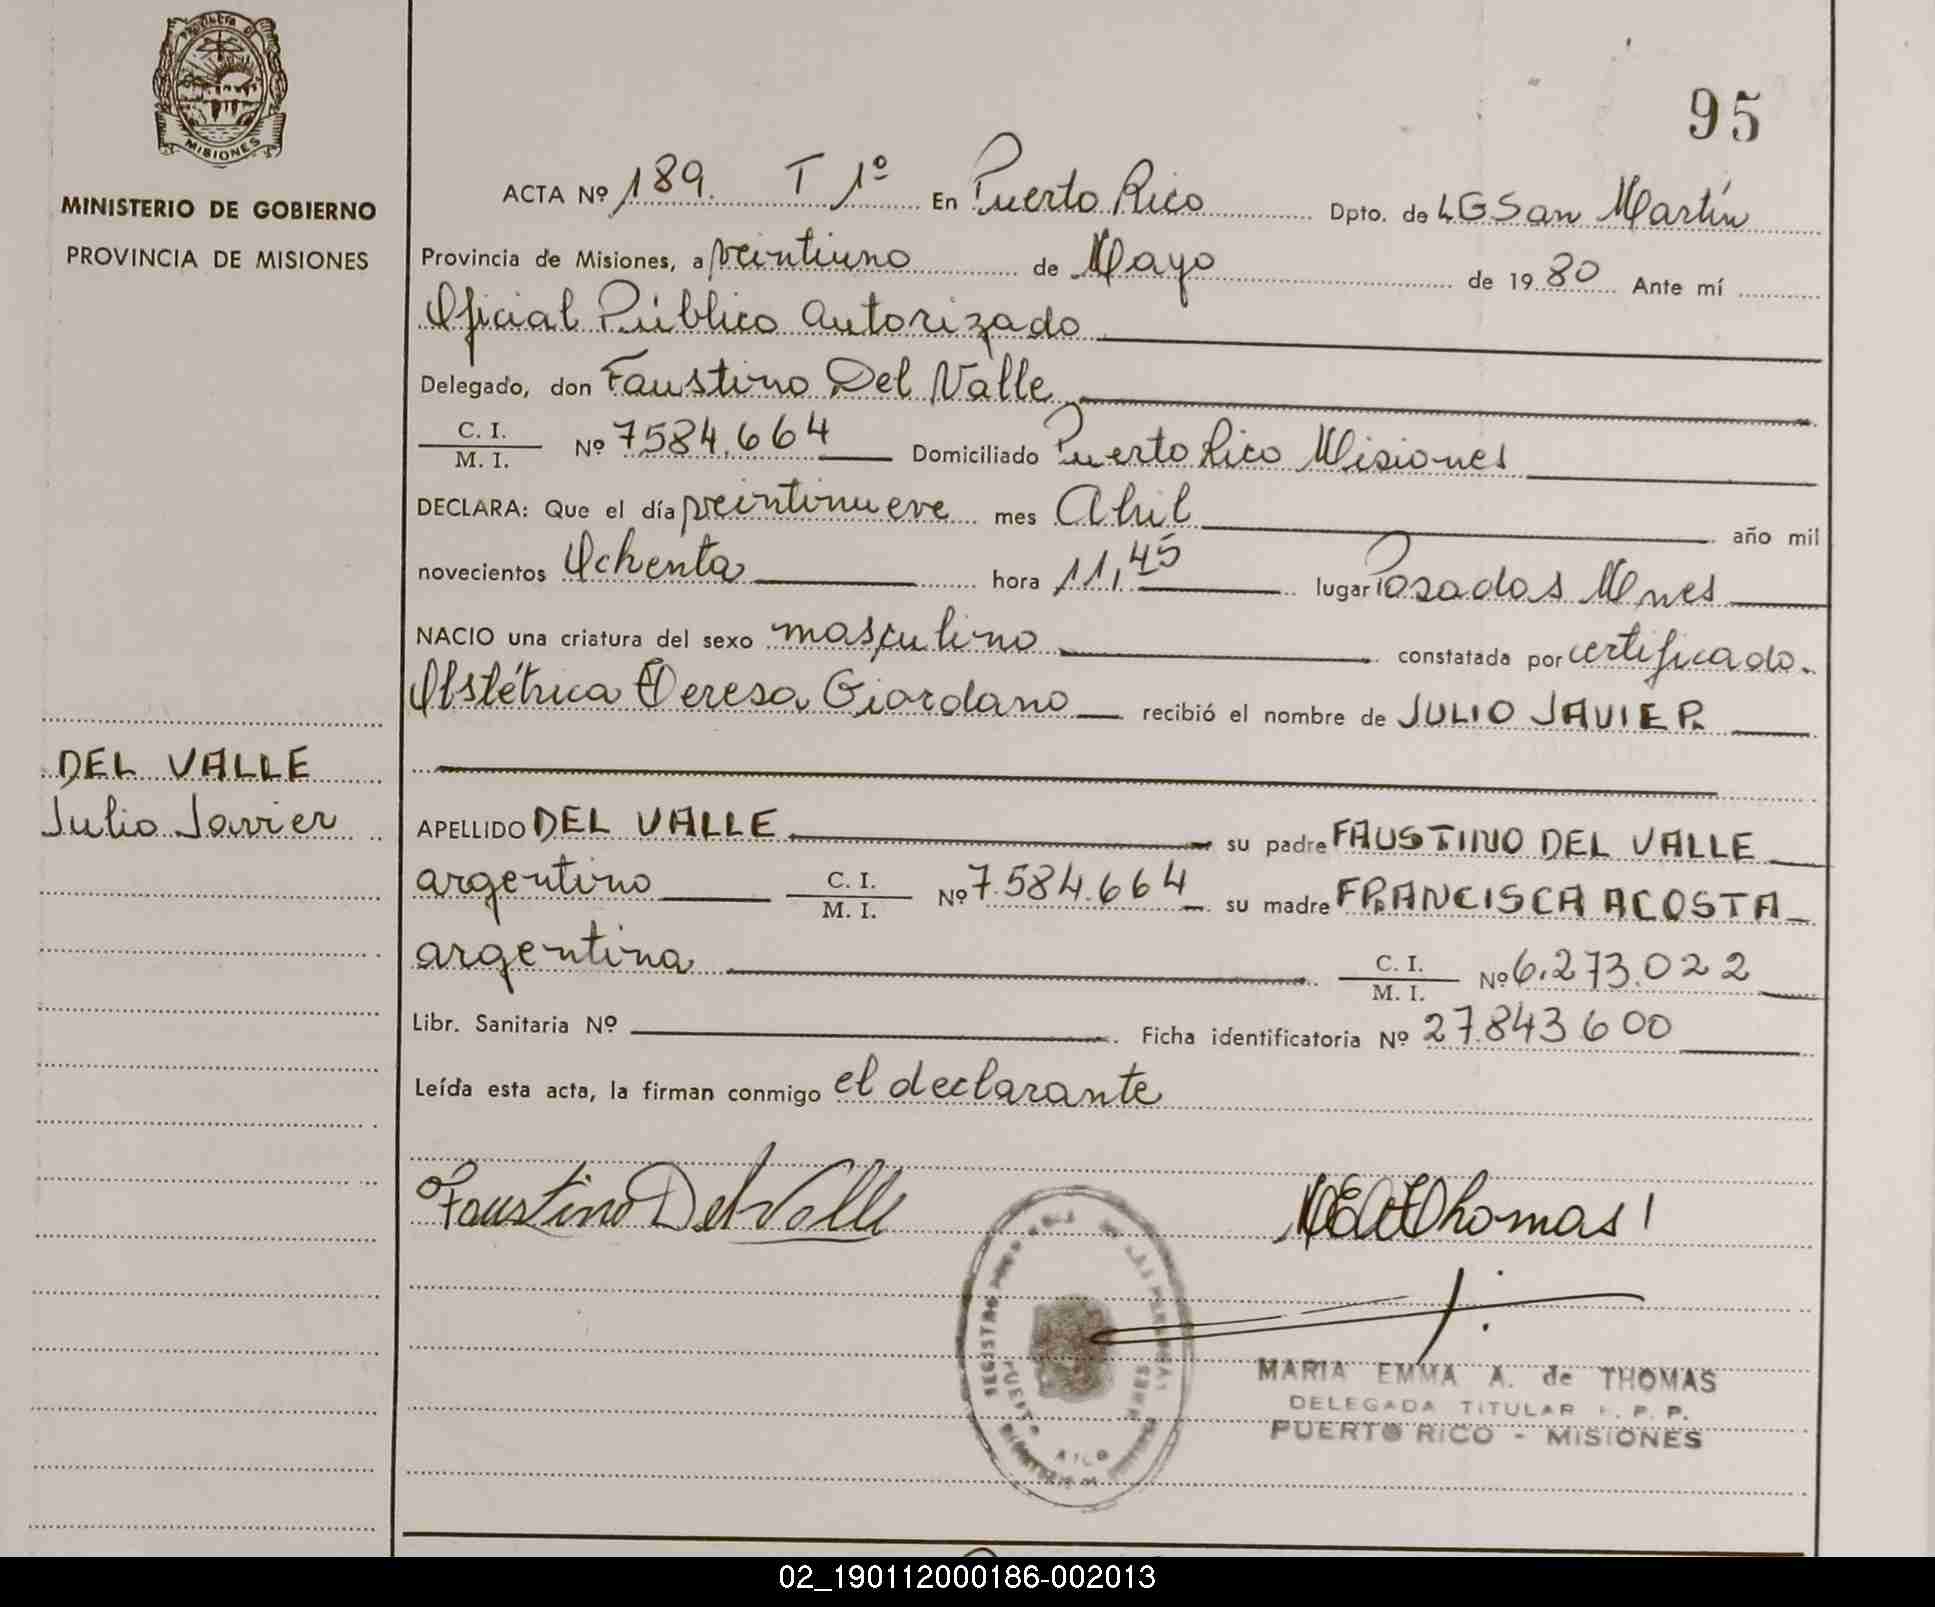 PROVINCIA DE
MISIONES
MINISTERIO DE GOBIERNO
PROVINCIA DE MISIONES
DEL VALLE
Julio Javier
95
ACTA Nº 189. T 1º En Puerto Rico Dpto. de LGSan Martín
Provincia de Misiones, a veintiuno de Mayo de 1980 Ante mí
Oficial Público autorizado
Delegado, don Faustino Del Valle
C. I.
M. I. Nº 7584.664 Domiciliado Puerto Rico Misiones
DECLARA: Que el día veintinueve mes Abril año mil
novecientos Ochenta hora 11,45 lugar Posadas Mnes
NACIO una criatura del sexo masculino constatada por certificado.
Obstétrica Teresa Giordano recibió el nombre de JULIO JAVIER
APELLIDO DEL VALLE su padre FAUSTINO DEL VALLE
argentino C. I.
M. I. Nº 7.584.664 su madre FRANCISCA ACOSTA
argentina C. I.
M. I. Nº 6.273.022
Libr. Sanitaria Nº Ficha identificatoria Nº 27.843600
Leída esta acta, la firman conmigo el declarante
Faustino Del Valle Thomas
MARIA EMMA A. de THOMAS
DELEGADA TITULAR P. P.
PUERTO RICO - MISIONES
REGISTRO
PUERTO RICO
02_190112000186-002013